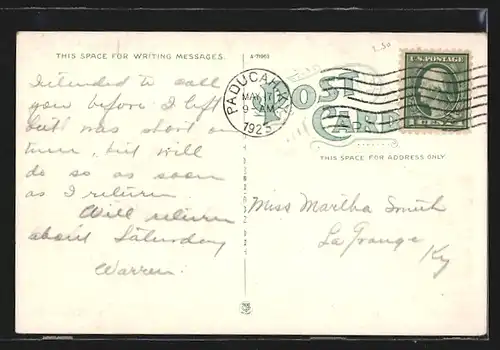 THIS SPACE FOR WRITING MESSAGES.
Intended to call
you before I left
but was short on
time, but will
do so as soon
as I return.
Will return
about Saturday
Warren.
PADUCAH, KY.
MAY 17
9 AM
1923
POST
CARD
U.S. POSTAGE
THIS SPACE FOR ADDRESS ONLY.
Miss Martha Smith
La Grange
Ky